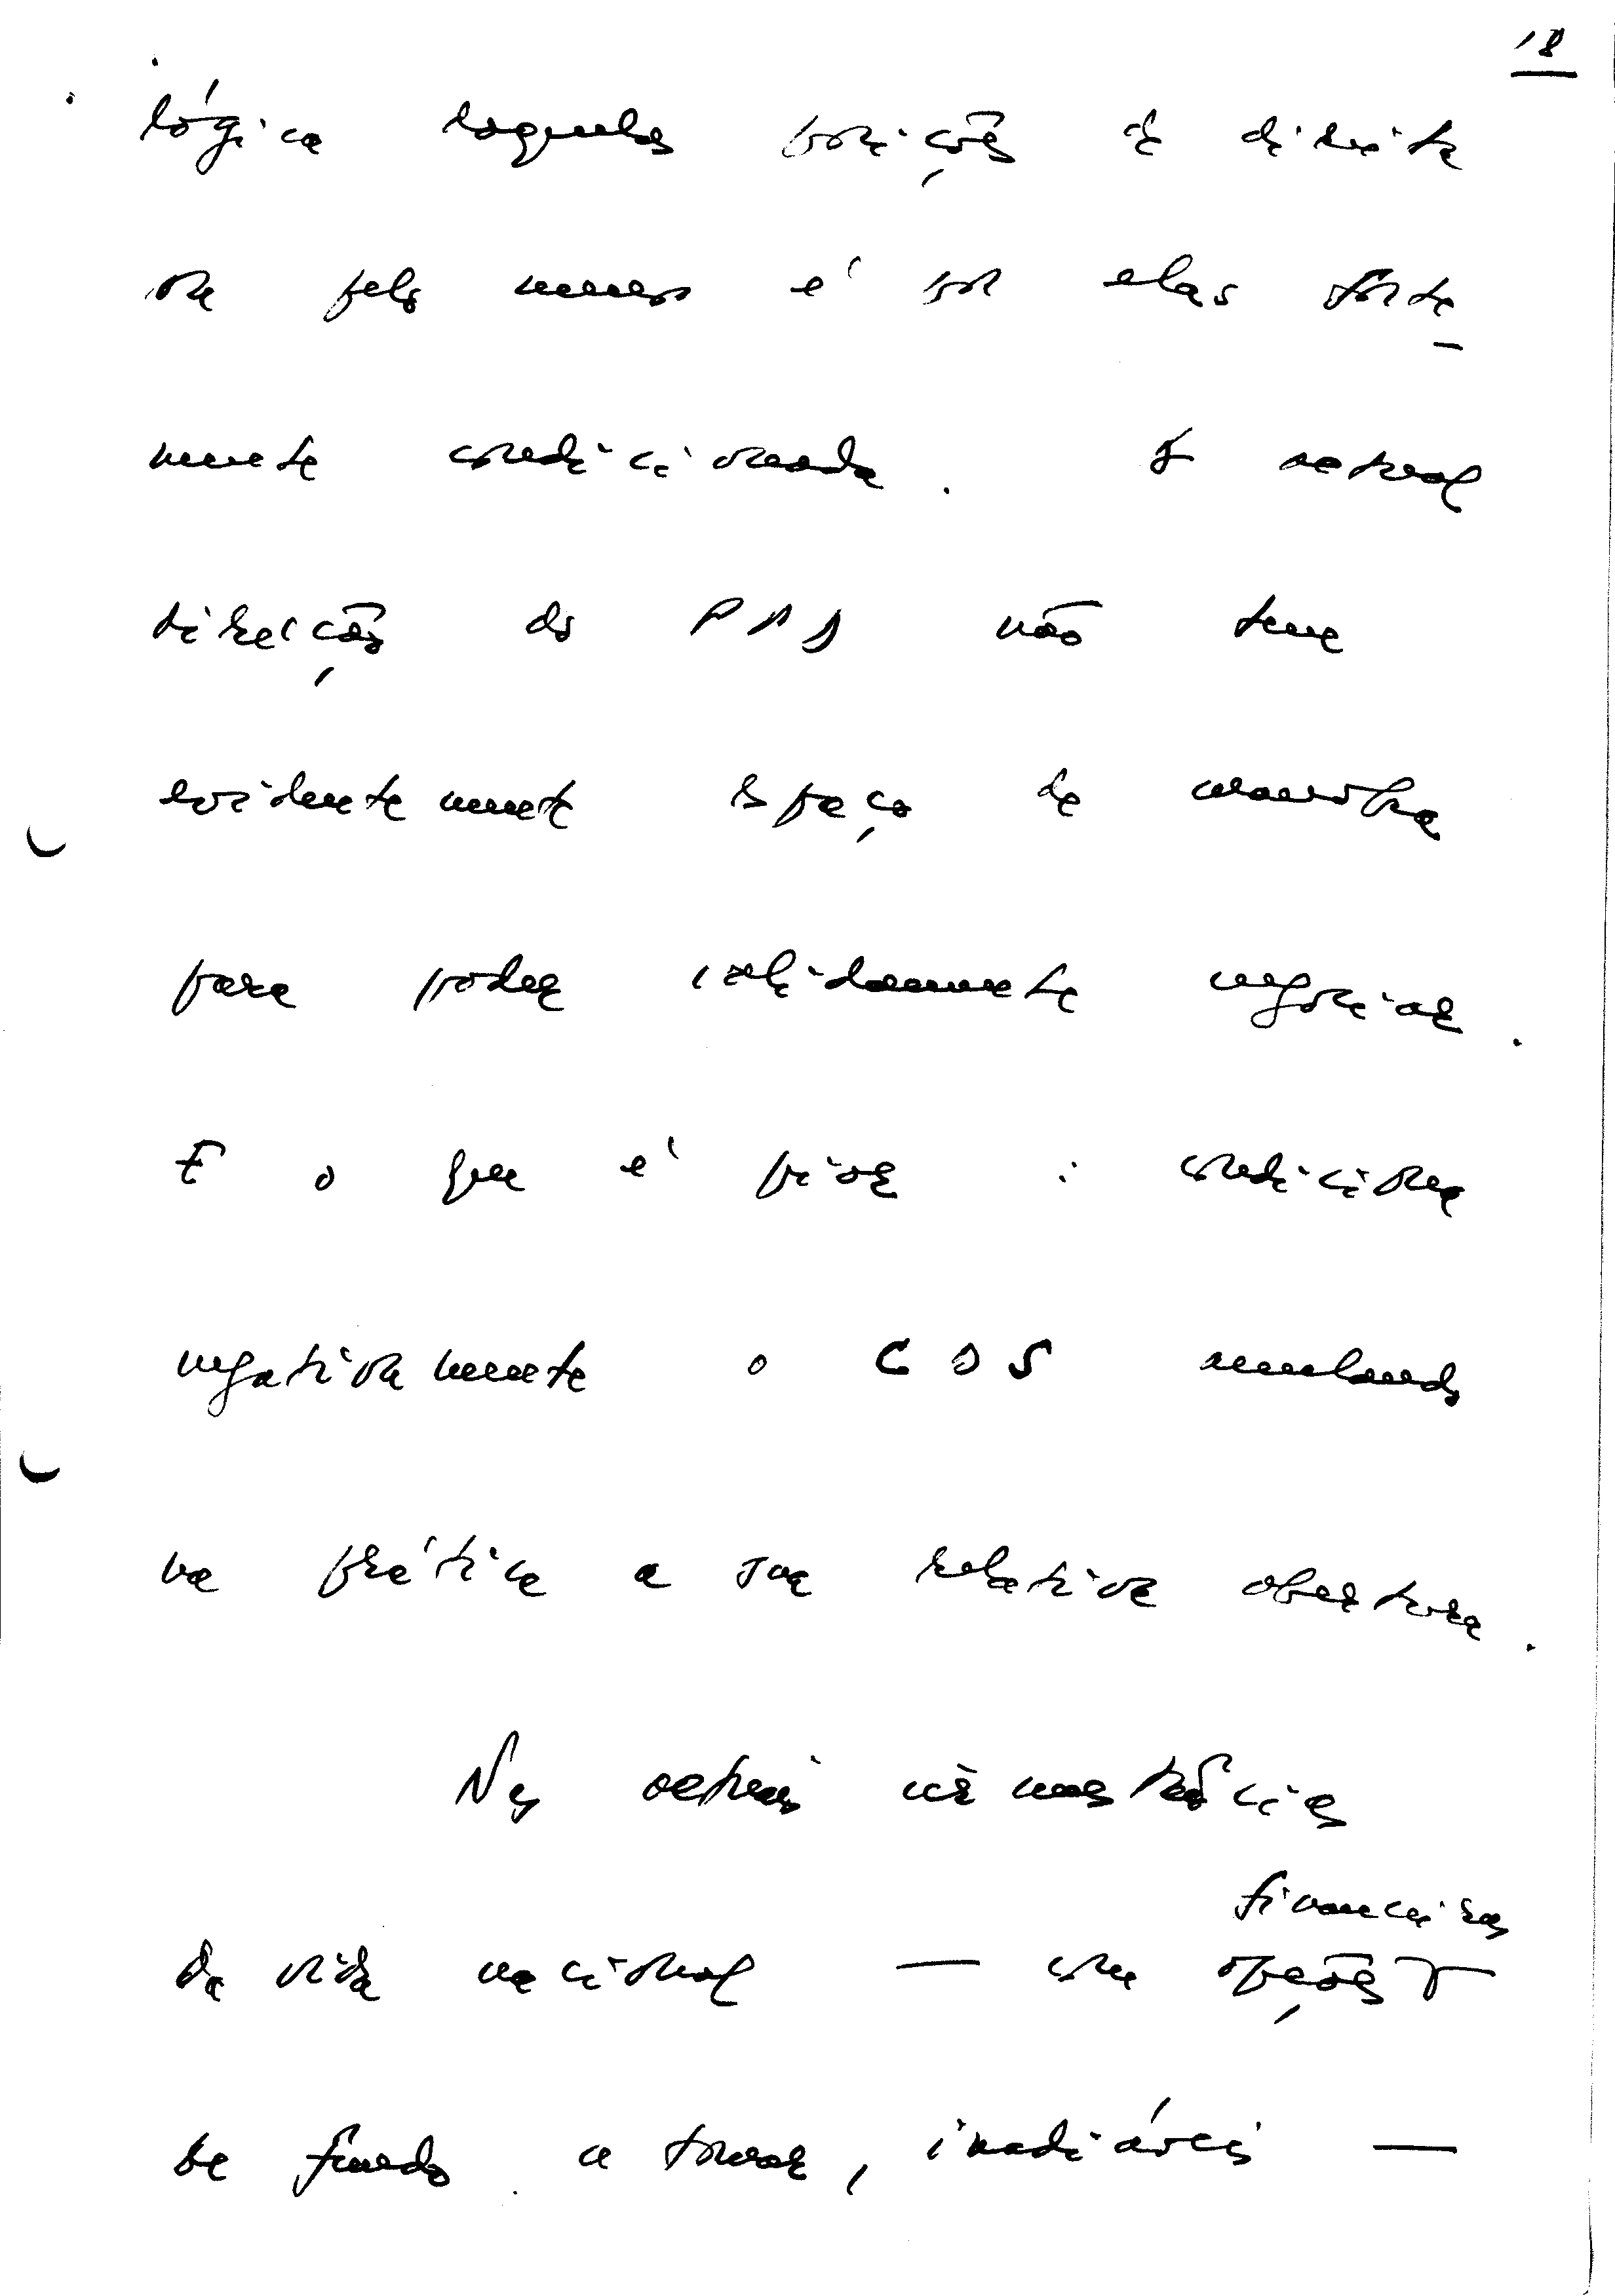 18
lógica daquelas posições de direita
ou pelo menos é por elas forte-
mente condicionada. A actual
direcção do PPD não tem
evidentemente espaço de manobra
para poder validamente negociar.
E o que é pior: condiciona
negativamente o CDS anulando
na prática a sua relativa abertura.
Nas actuais circunstâncias
da vida nacional — com opções financeiras
de fundo a tomar, inadiáveis —